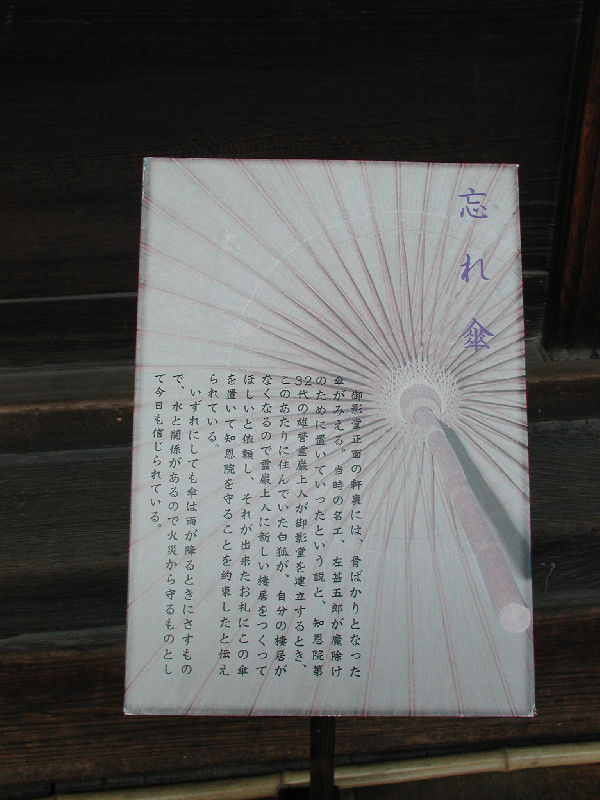 忘れ傘
御影堂正面の軒裏には、骨ばかりとなった
傘がみえる。当時の名工、左甚五郎が魔除け
のために置いていったという説と、知恩院第
32代の雄誉霊巌上人が御影堂を建立するとき、
このあたりに住んでいた白狐が、自分の棲居が
なくなるので霊巌上人に新しい棲居をつくって
ほしいと依頼し、それが出来たお礼にこの傘
を置いて知恩院を守ることを約束したと伝え
られている。
いずれにしても傘は雨が降るときにさすもの
で、水と関係があるので火災から守るものとし
て今日も信じられている。